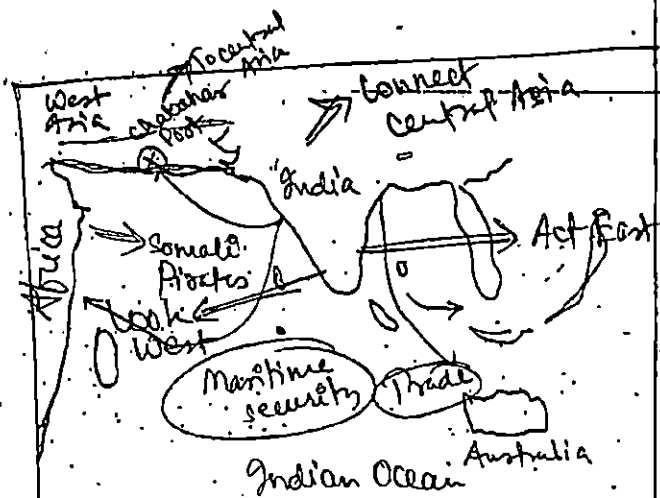 To central
Asia
West
Asia
Chabahar
Port
Connect
central Asia
India
Africa
Somali
Pirates
Act East
Look
West
Maritime
security
Trade
Australia
Indian Ocean